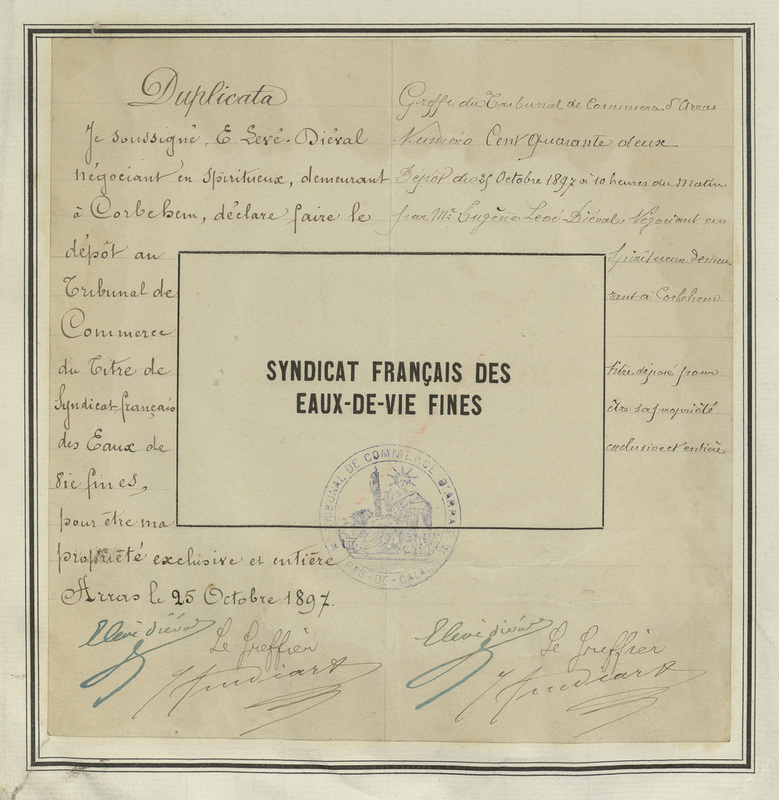 Duplicata
Je soussigné, E. Levé-Diéval
négociant en spiritueux, demeurant
à Corbehem, déclare faire le
dépôt au
Tribunal de
Commerce
du Titre de
Syndicat français
des Eaux de
Vie fines,
pour être ma
propriété exclusive et entière
Arras le 25 Octobre 1897.
Greffe du Tribunal de Commerce d'Arras
Numéro Cent quarante deux
Dépôt du 25 Octobre 1897 à 10 heures du matin
par Mr. Eugène Levé-Diéval, Négociant en
spiritueux demeu
rant à Corbehem
titre déposé pour
être sa propriété
exclusive et entière
SYNDICAT FRANÇAIS DES
EAUX-DE-VIE FINES
TRIBUNAL DE COMMERCE D'ARRAS
PAS-DE-CALAIS
ELevé diéval
Le Greffier
ELevé diéval
Le Greffier